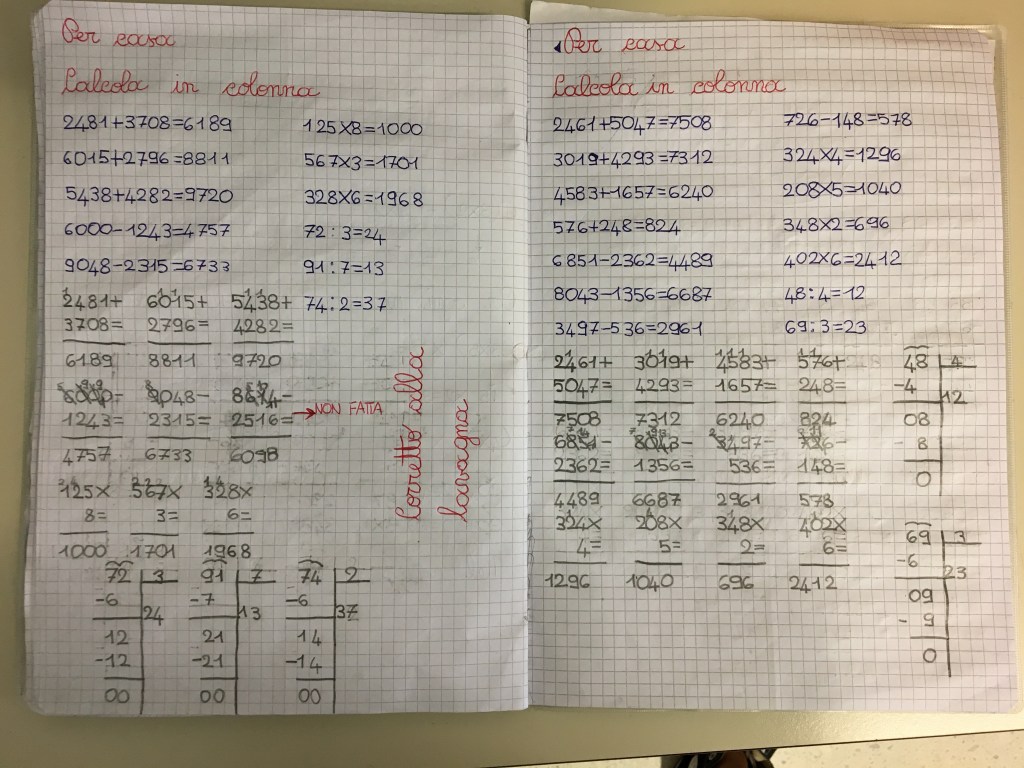 Per casa
Calcola in colonna
2481+3708=6189
6015+2796=8811
5438+4282=9720
6000-1243=4757
9048-2315=6733
125x8=1000
567x3=1701
328x6=1968
72:3=24
91:7=13
74:2=37
2481+ 6015+ 5438+
3708= 2796= 4282=
6189 8811 9720
6000- 9048- 8614-
1243= 2315= 2516= NON FATTA
4757 6733 6098
125x 567x 328x
8= 3= 6=
1000 1701 1968
72 3 91 7 74 2
-6 24 -7 13 -6 37
12 21 14
-12 -21 -14
00 00 00
Corretto alla
lavagna
Per casa
Calcola in colonna
2461+5047=7508
3019+4293=7312
4583+1657=6240
576+248=824
6851-2362=4489
8043-1356=6687
3497-536=2961
726-148=578
324x4=1296
208x5=1040
348x2=696
402x6=2412
48:4=12
69:3=23
2461+ 3019+ 4583+ 576+
5047= 4293= 1657= 248=
7508 7312 6240 824
6851- 8043- 3497- 726-
2362= 1356= 536= 148=
4489 6687 2961 578
324x 208x 348x 402x
4= 5= 2= 6=
1296 1040 696 2412
48 4
-4 12
08
8
0
69 3
-6 23
09
- 9
0